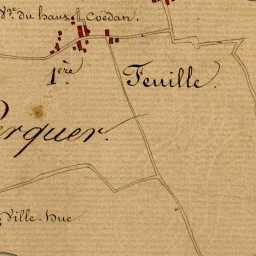 du haut Coëdan.
1ère Feuille.
erquer.
Ville-hue